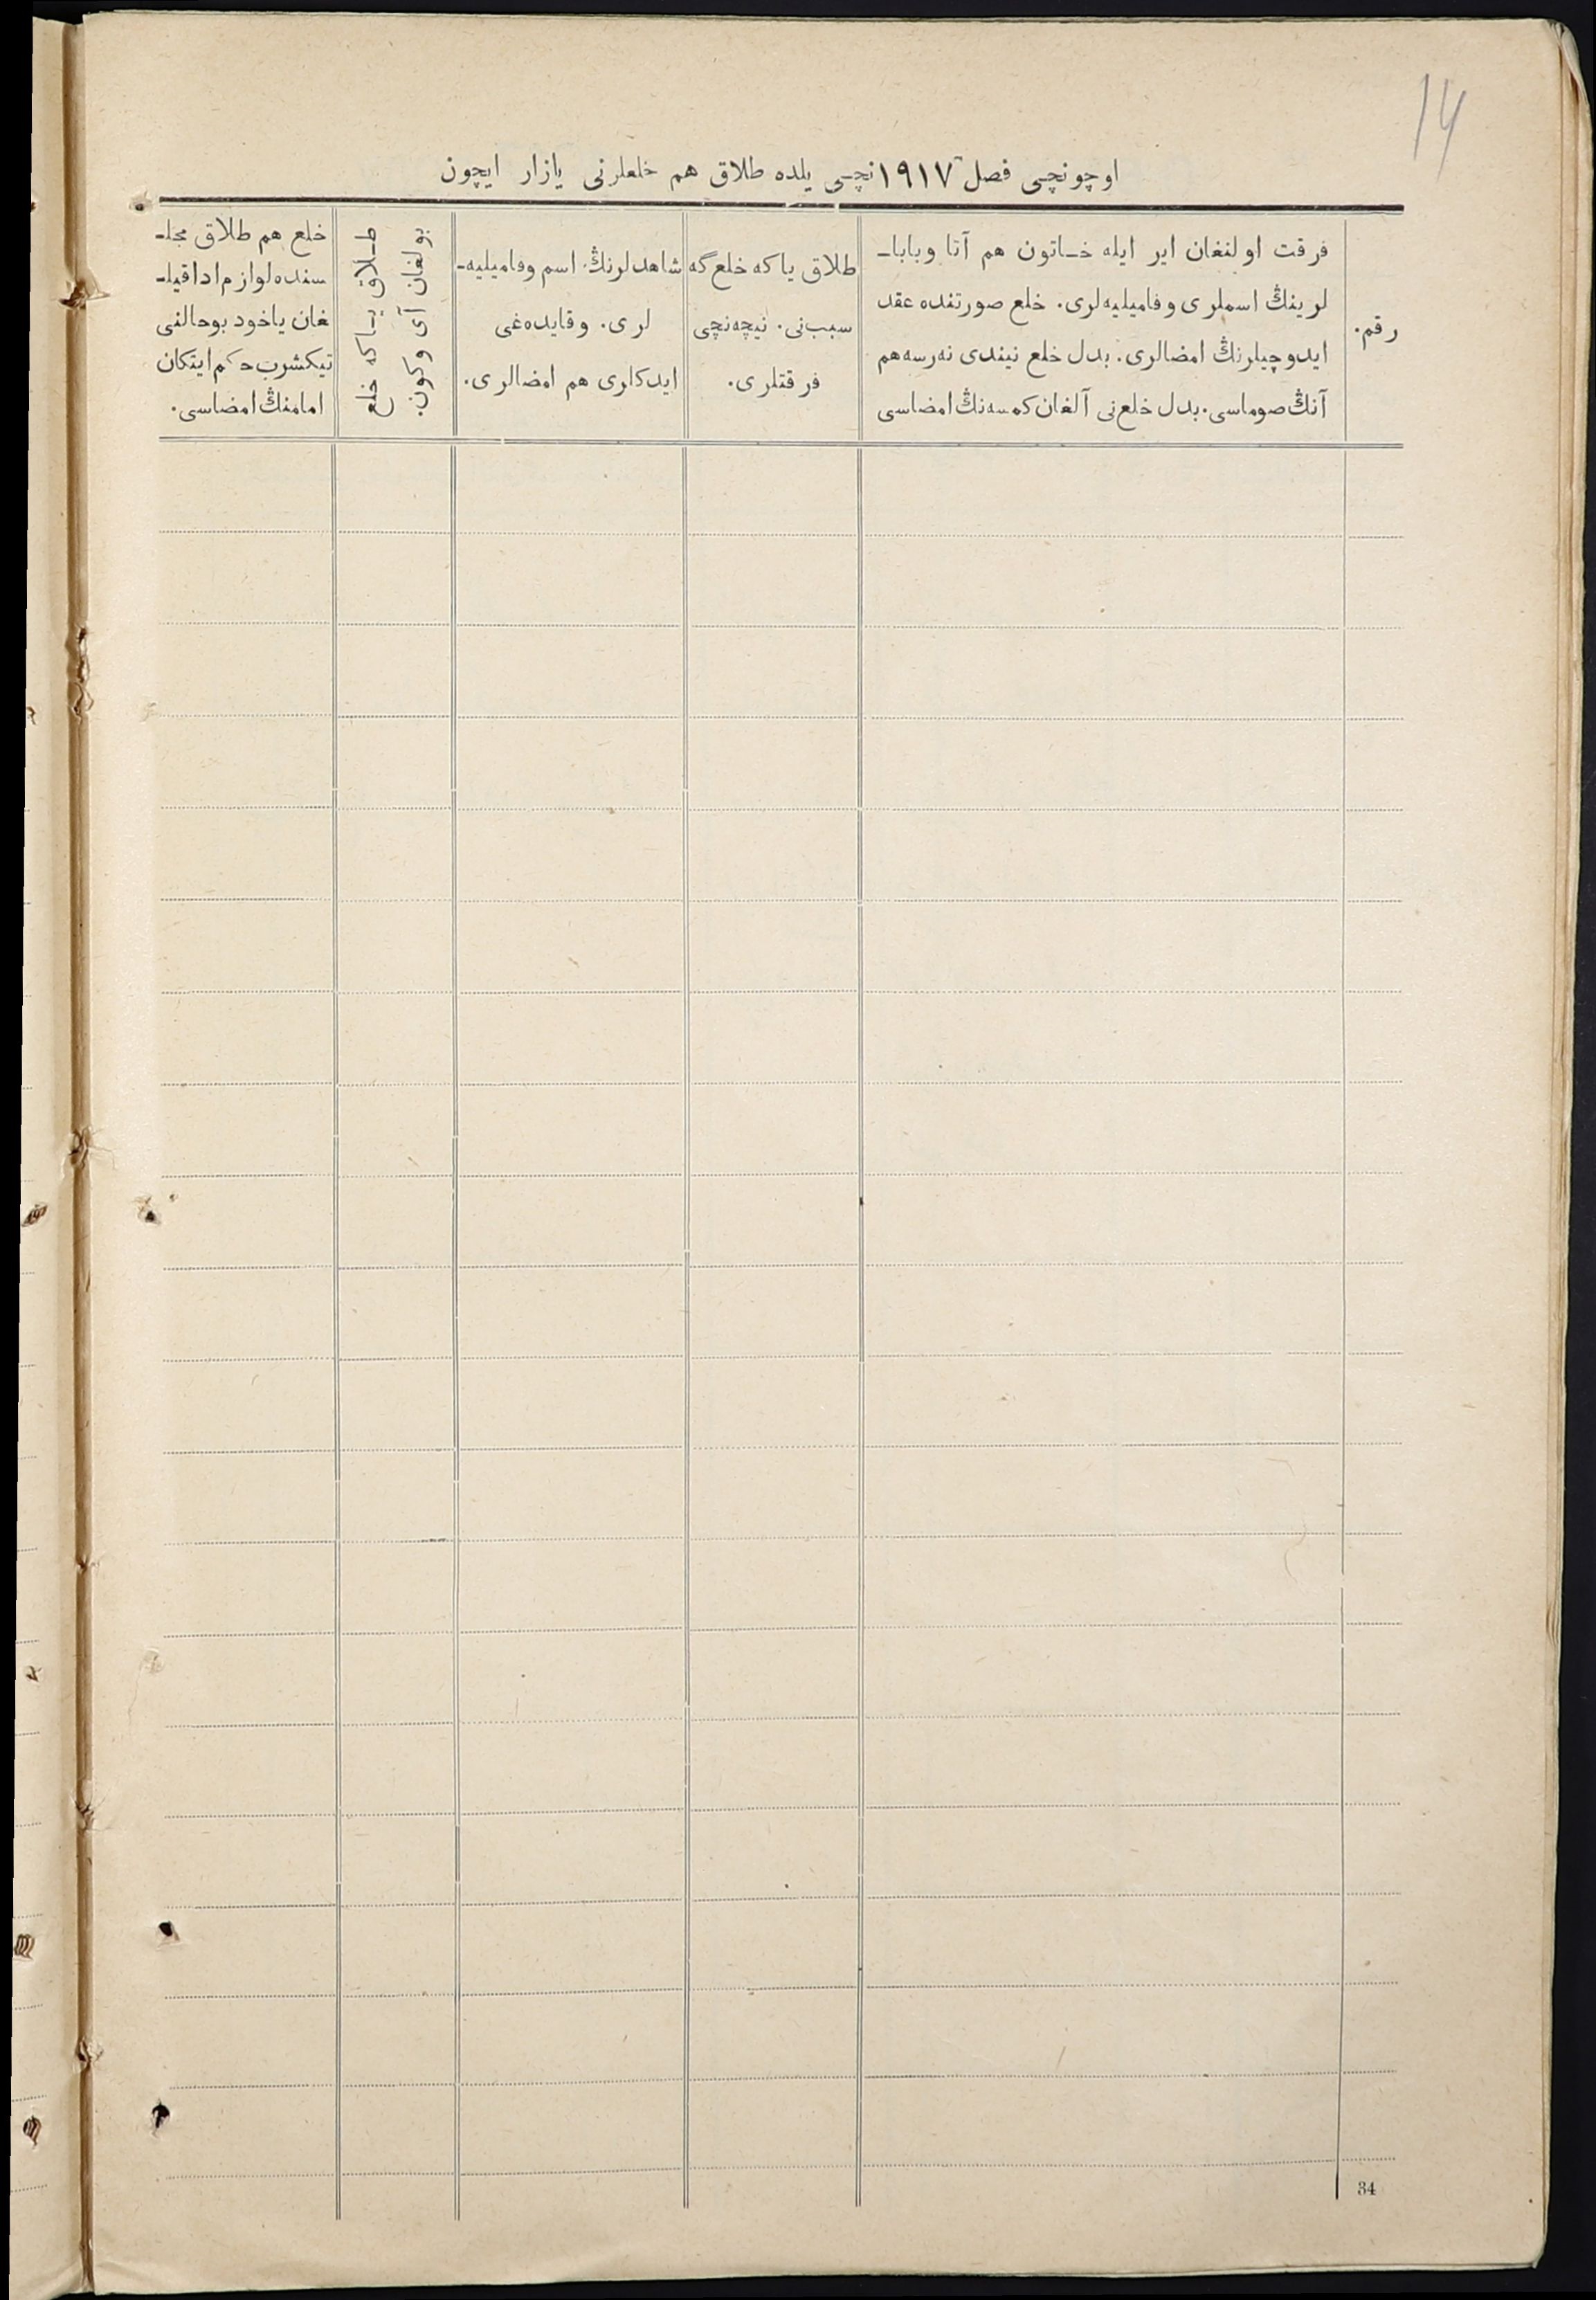 14
اوچونچی فصل ١٩١٧نچی یلده طلاق هم خلعلرنی یازار ایچون
رقم.
فرقت اولنغان ایر ایله خـاتون هم آتا وباباـ
لرینڭ اسملری وفامیلیه‌لری. خلع صورتنده عقد
ایدوچیلرنڭ امضالری. بدل خلع نیندی نه‌رسه‌هم
آنڭ صوماسی. بدل خلع‌نی آلغان کمسه‌نڭ امضاسی
طلاق یاکه خلع‌گه
سبب‌نی. نیچه‌نچی
فرقتلری.
شاهدلرنڭ اسم وفامیلیه‌ـ
لری. وقایده‌غی
ایدکلری هم امضالری.
طـلاق یـاکه خلع
بولغان آی وکون.
خلع هم طلاق مجلـ
سنده‌لوازم‌اداقیلـ
غان یاخود بوحالنی
تیکشرب‌حکم‌ایتکان
امامنڭ امضاسی.
34